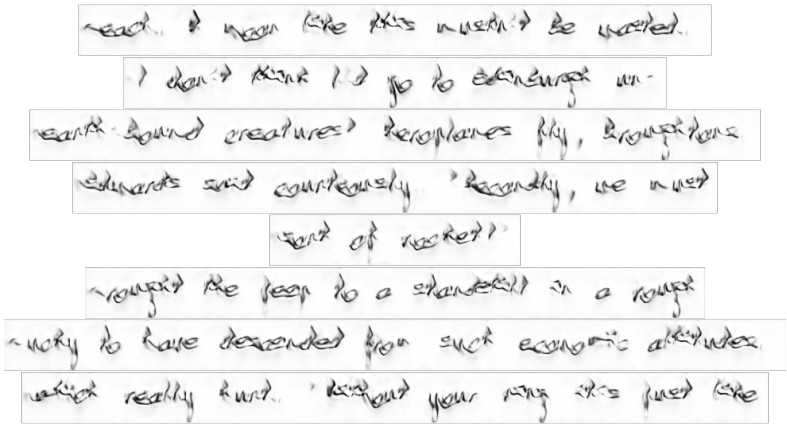 each. A moon like this mustn't be wasted.
I don't think I'd go to Edinburgh un-
earth-bound creatures? Aeroplanes fly, Broughtons
Edwards said courteously. Secondly, we must
sort of rocket?"
rought the jeep to a standstill in a rough
ucky to have descended from such economic altitudes.
which really hurt. "Without your ring it's just like